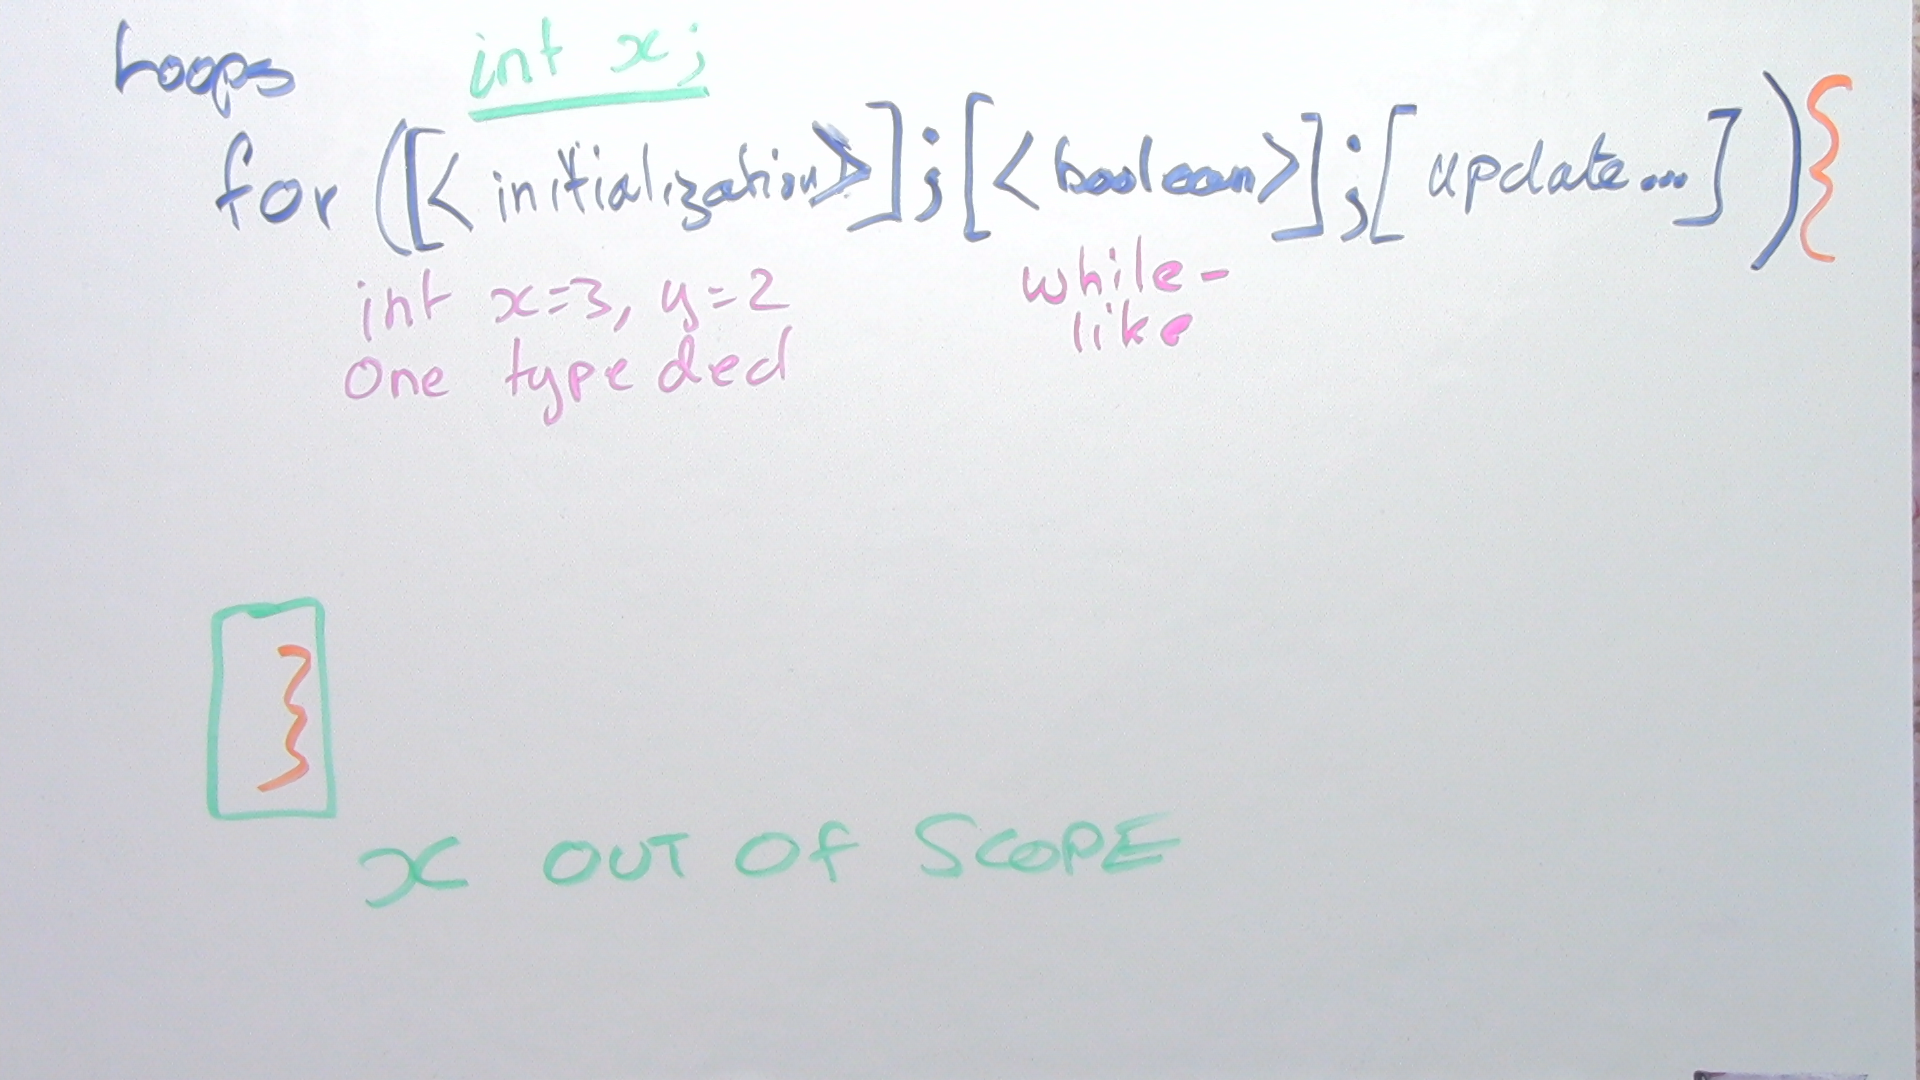 Loops
int x;
for ([< initialization>];[<boolean>];[update...]){
int x=3, y=2
one type decl
while-
like
}
x OUT OF SCOPE